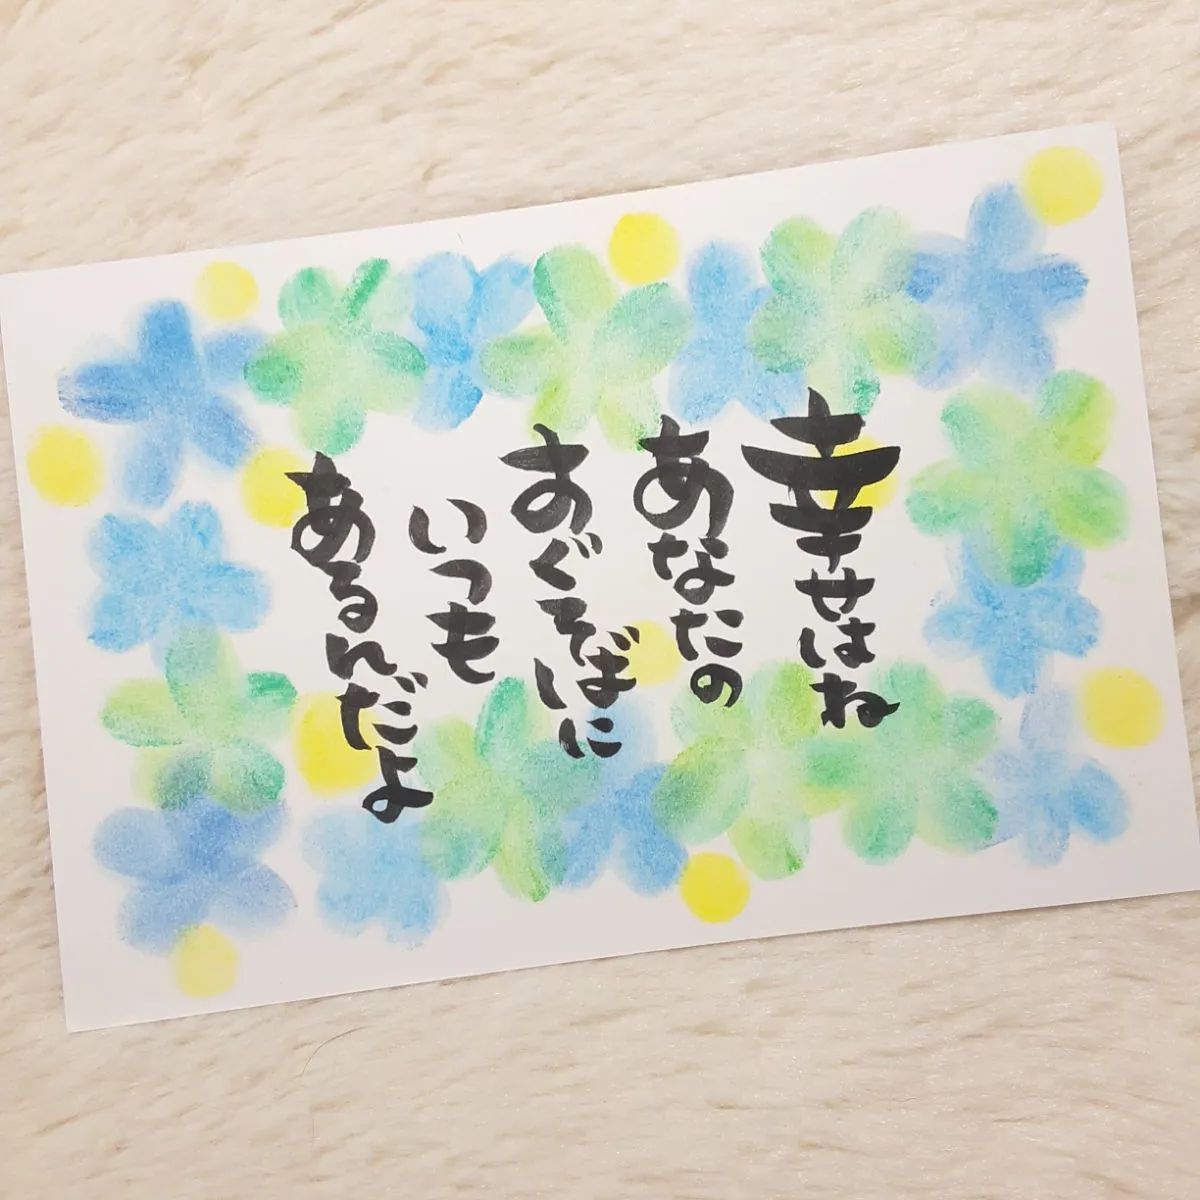 幸せはね
あなたの
すぐそばに
いつも
あるんだよ